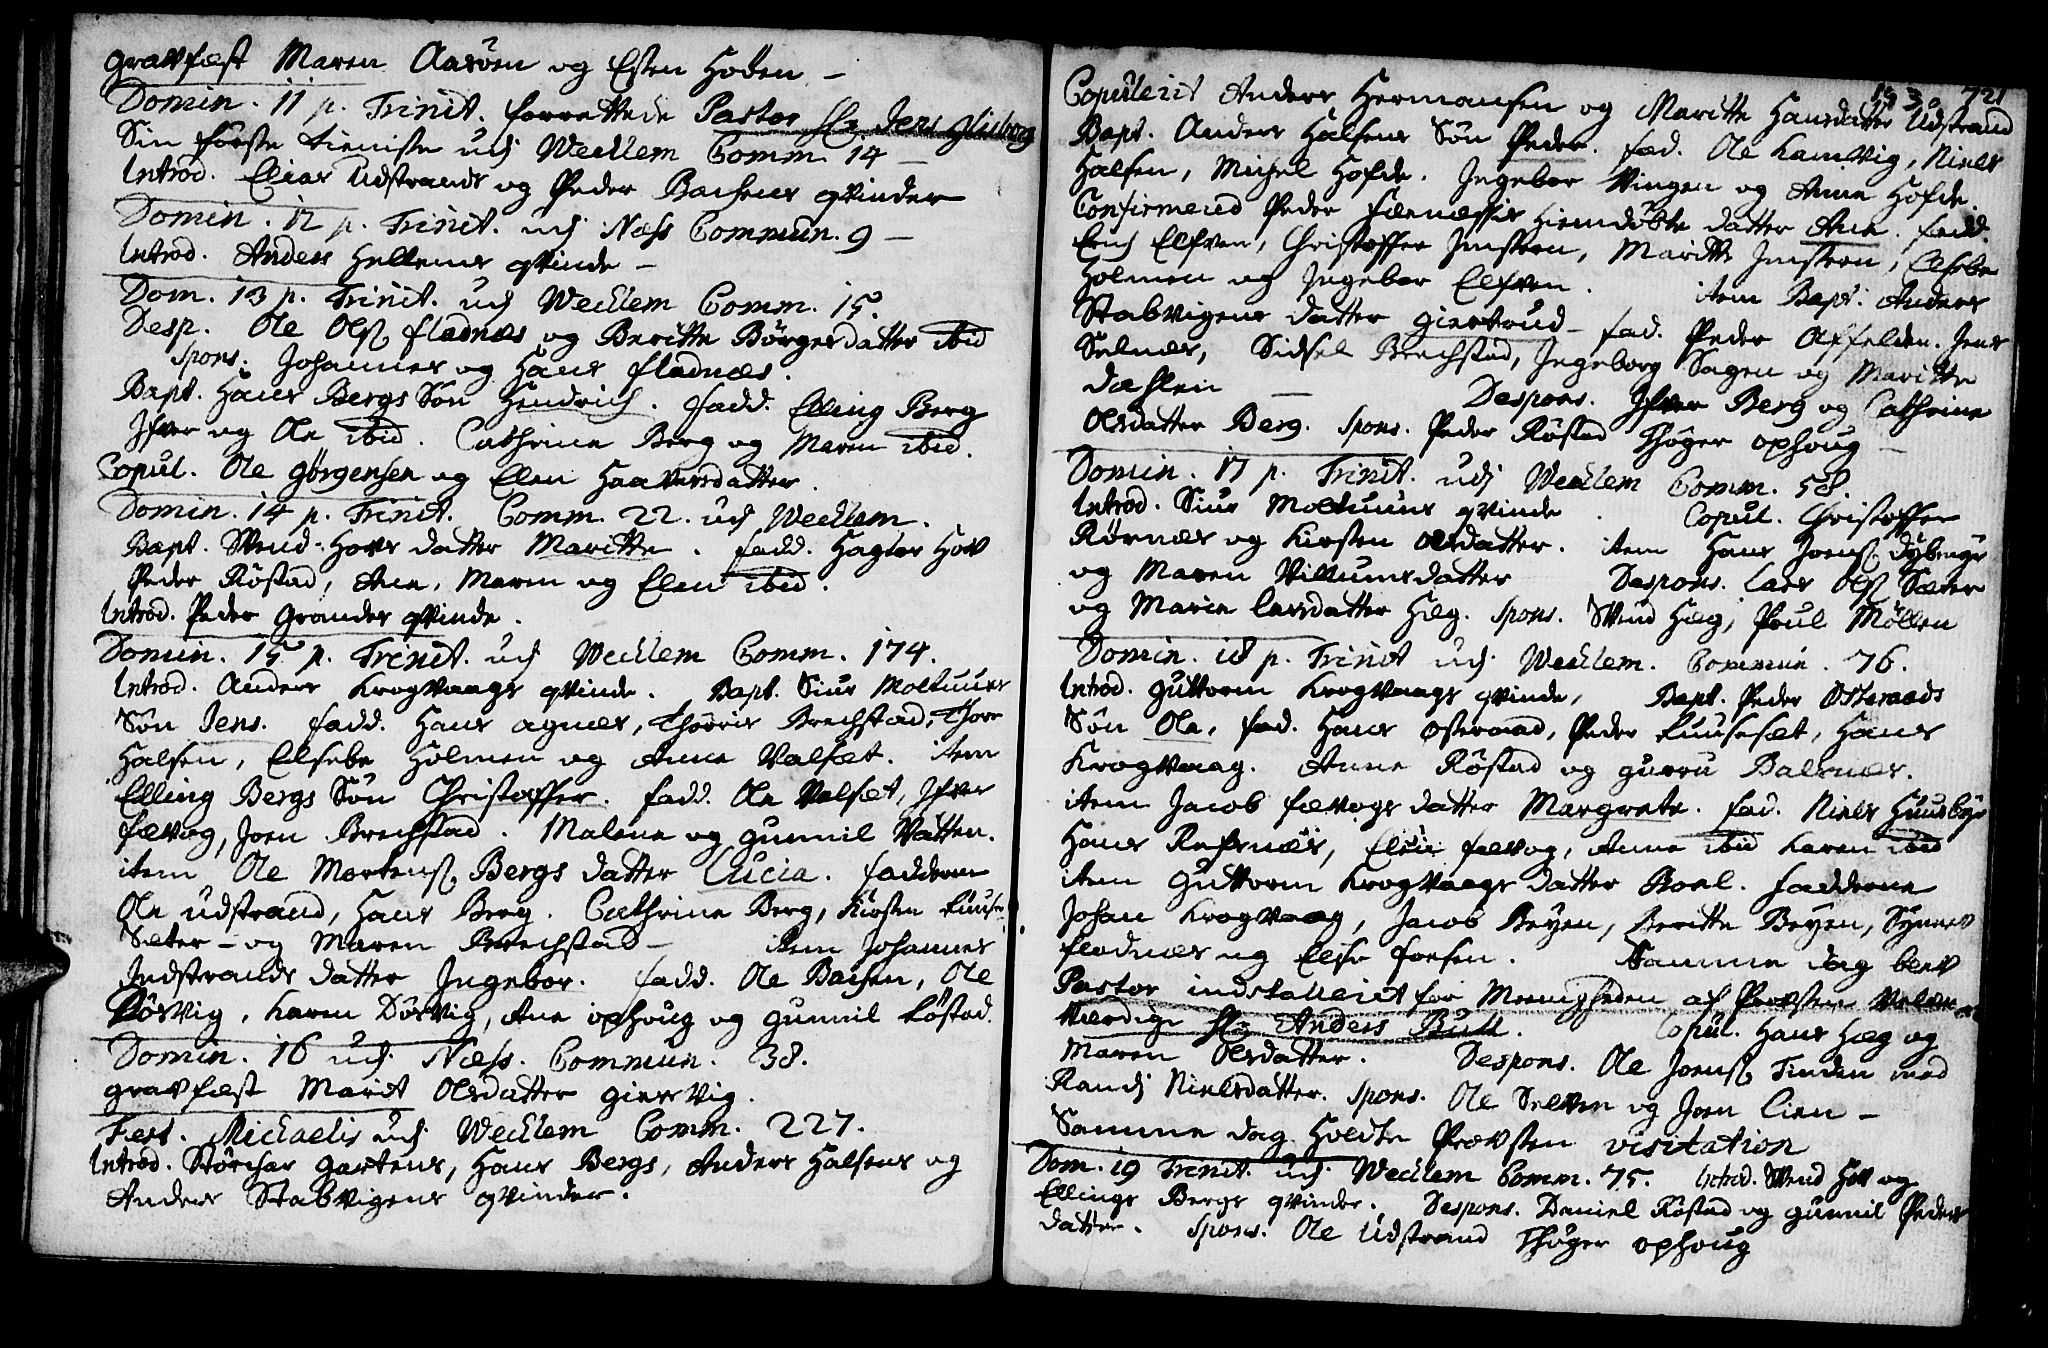 gravfæst Maren Aasöen og Esten Hoden –
Domin. 11 p. Trinit. forrettede Pastor Hr Jens
Sin förste tieniste udj Wecklem Comm. 14 –
Introd. Elias Udstrands og Peder Bachens qvinder
Domin. 12 p. Trinit. udj Næss Commun. 9 –
Introd. Anders Hellemes qvinde –
Dom. 13 p. Trinit. udj Wecklem Comm. 15.
Desp. Ole Olss. fladnæs og Beritte Börgesdatter ibid
spons. Johannes og Hans fladnæs.
Bapt. Hans Bergs Sön Hendrich. fadd. Elling Berg
Ifver og Ole ibid. Cathrine Berg og Maren ibid.
Copul. Ole Jörgensen og Elen Haaversdatter.
Domin. 14 p. Trinit. Comm. 22. udj Wecklem.
Bapt. Svend Hovs datter Maritte. fadd. Hagtor Hov
Peder Röstad, Ane, Maren og Elen ibid.
Introd. Peder Grandes qvinde.
Domin. 15 p. Trinit. udj Wecklem Comm. 174.
Introd. Anders Krogvaags qvinde. Bapt. Siur Moltuurs
Sön Jens. fadd. Hans agnæs, Thorris Brechstad, Thore
Halsen, Elsebe Holmen og Anne Valsæt. item
Elling Bergs Sön Christoffer. fadd. Ole Valsæt, Ifver
fævog, Joen Brechstad. Malene og Gunnil Vatten.
item Ole Mortenss. Bergs datter Lucia. fadderne
Ole Udstrand, Hans Berg. Cathrine Berg, Kirsten Luuse
Sæter – og Maren Brechstad – item Johannes
Indstrands datter Ingebor. fadd. Ole Bachen, Ole
Dösvig, Karen Dösvig, Ane ophoug og Gunnil Röstad.
Domin. 16 udj Næss. Commun. 38.
gravfæst Marit Olsdatter Giesvig.
Fest. Michaelis udj Wecklem Comm. 227.
Introd. Störchar Gartens, Hans Bergs, Anders Halsens og
Anders Stabvigens qvinder.
721
Copulerit Anders Hermansen og Maritte Hansdatter Udstrand
Bapt. Anders Halsens Sön Peder. fad. Ole Kamvig, Niels
Halsen, Michel Hofde. Ingebor Vingen og Anne Hofde.
Confirmerid Peder Hiemdöbte datter Ane. fadd.
Erich Elfven, Christoffer, Maritte, Elsebe
Holmen og Ingebor Elfven. item Bapt. Anders
Stabvigens datter Giertrud – fad. Peder Affelden. Jens
Selnæs, Sidsel Brechstad, Ingeborg Sagen og Maritte
Dahlen – Despons. Ifver Berg og Cathrine
Olsdatter Berg. Spons. Peder Röstad Thöger ophoug –
Domin. 17 p. Trinit. udj Wecklem Comm. 58.
Introd. Siur Moltuurs qvinde. Copul. Christoffer
Rörnæs og Kirsten Olsdatter. item Hans Joenss. Dybenge
og Maren Villumsdatter Despons. Lars Olss. Sæter
og Marie Larsdatter Hæg. spons. Svend Hæg, Poul Möllen
Domin. 18 p. Trinit udj Wecklem. Commun. 76.
Introd. Guttorm Krogvaags qvinde, Bapt. Peder Österaads
Sön Ole, fad. Hans Österaad, Peder Luusesæt, Hans
Krogvaag. Anne Röstad og Guru Balsnæs.
item Jacob fævogs datter Margrete. fad. Niels Huusbye
Hans Refsnæs, Elen fævog, Anne ibid Karen ibid
item Guttorm Krogvaags datter Boel. fadderne
Johan Krogvaag, Jacob Beyen, Beritte Beyen, Synnev
fladnæs og Else forsen. Samme dag blev
Pastor installerit for Meenigheden af Provsten Velær
værdige Hr Anders Bull. Copul. Hans Hæg og
Maren Olsdatter. Despons. Ole Joenss. Tinden med
Randj Nielsdatter. Spons. Ole Selven og Joen Lien –
Samme dag Holdte Provsten visitation
Dom. 19 Trinit. udj Wecklem Comm. 75. Introd. Svend Hov og
Ellings Bergs qvinder. Despons. Daniel Röstad og Gunnil Peders
datter. Spons. Ole Udstrand Thöger ophoug